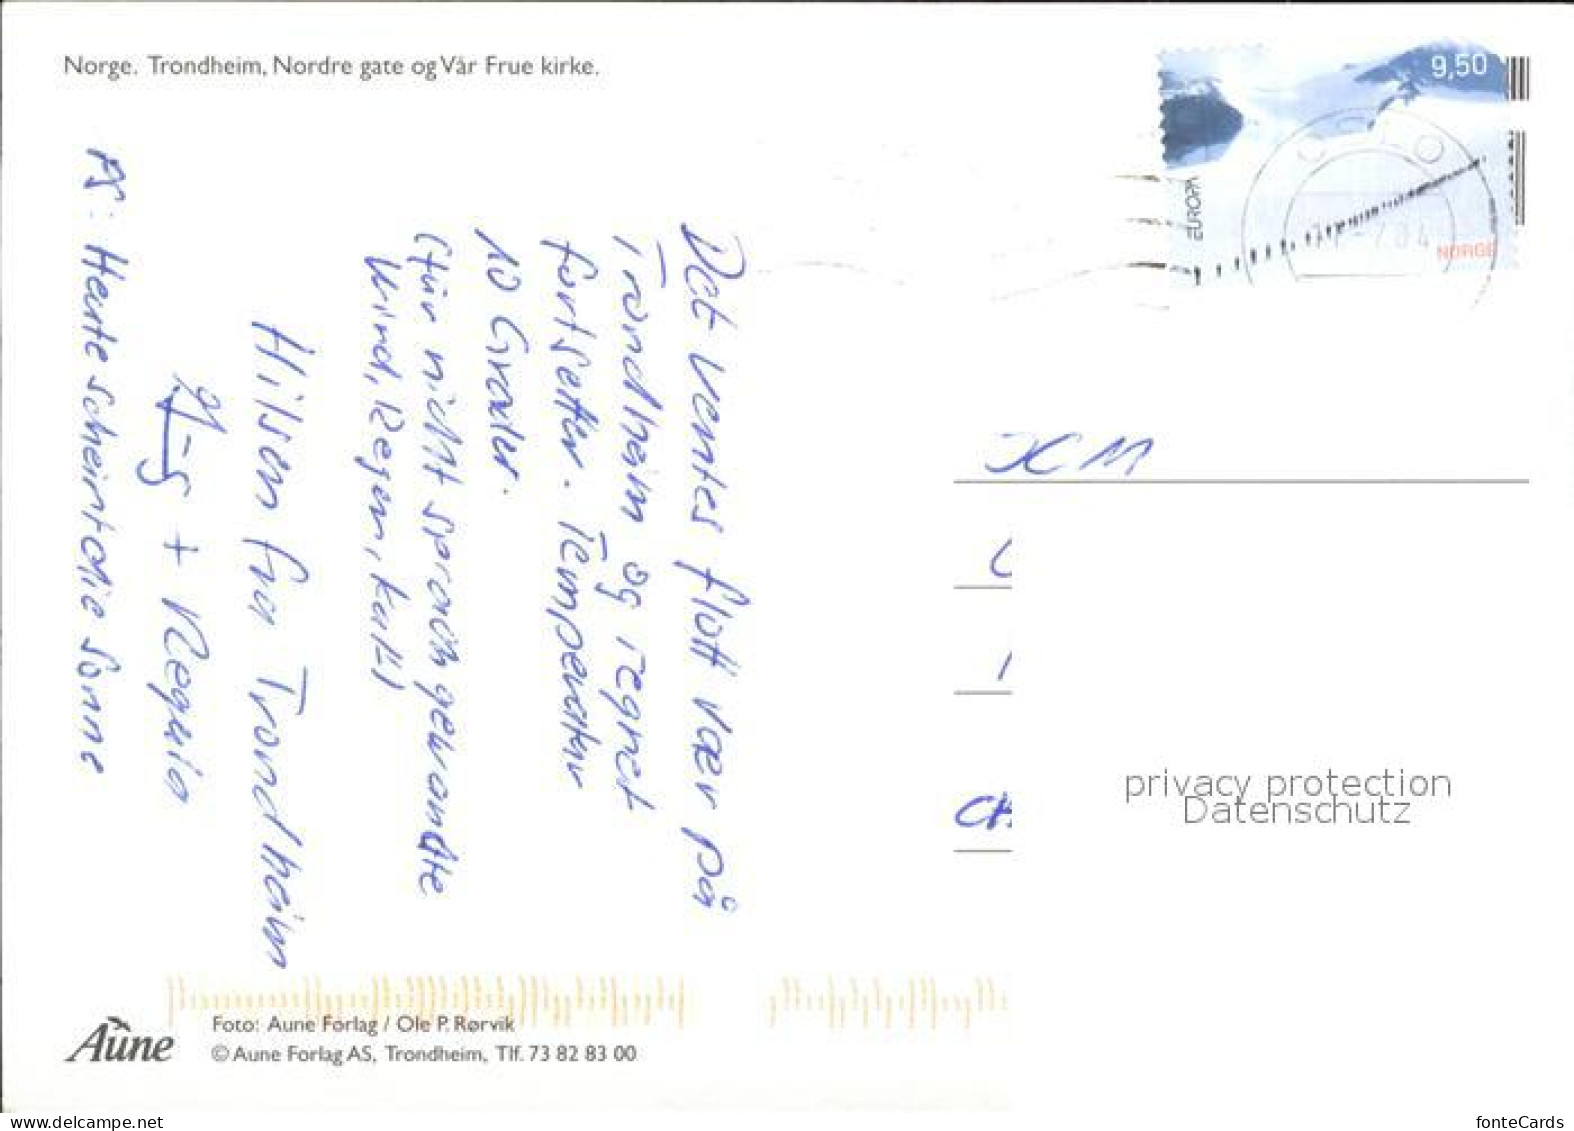 Norge. Trondheim, Nordre gate og Vår Frue kirke.
9,50
EUROPA
NORGE
Det ventes flott vær på
Trondheim og regnet
fortsetter. Temperatur
10 Grader.
(für nicht sprachgewandte
Wind, Regen, kalt)
Hilsen fra Trondheim
+ Regula
PS: Heute scheint die Sonne
JCM
privacy protection
Datenschutz
Aune
Foto: Aune Forlag / Ole P. Rørvik
© Aune Forlag AS, Trondheim, Tlf. 73 82 83 00
www.delcampe.net
fonteCards